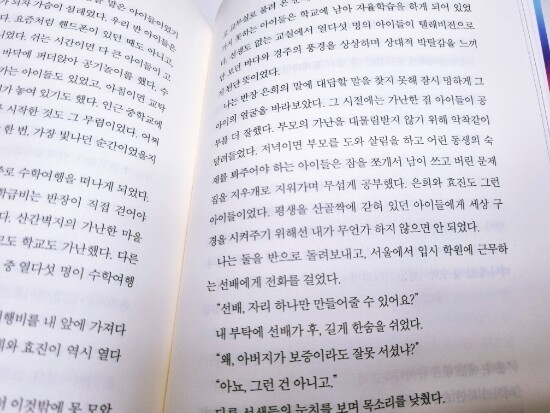 많은 아이들이었기
가 되자 가슴이 설레었다. 우리 반 아이들은
다. 요즈처럼 핸드폰이 있던 때도 아니고,
니다. 쉬는 시간이면 다 큰 아이들이 고
바닥에 퍼더앉아 공기놀이를 했다. 수
가는 아이들도 있었고, 아침이면 교탁
가 놓여 있기도 했다. 인근 중학교에
시작한 것도 그 무렵이었다. 어쩌
한 번, 가장 빛나던 순간이었을지
로 수학여행을 떠나게 되었다.
학급비는 반장이 직접 걷어야
다. 산간벽지의 가난한 마을
모도 학교도 가난했다. 다른
중 열다섯 명이 수학여행
여행비를 내 앞에 가져다
희와 효진이 역시 열다
서 이것밖에 못 모았
가지 못하는 아이들은 학교에 남아 자율학습을 하게 되어 있었
다. 선생도 없는 교실에서 열다섯 명의 아이들이 텔레비전으로
만 보던 바다와 경주의 풍경을 상상하며 상대적 박탈감을 느끼
게 된단 뜻이었다.
나는 반장 은희의 말에 대답할 말을 찾지 못해 잠시 멍하게 그
아이의 얼굴을 바라보았다. 그 시절에는 가난한 집 아이들이 공
부를 더 잘했다. 부모의 가난을 대물림받지 않기 위해 악착같이
달려들었다. 저녁이면 부모를 도와 살림을 하고 어린 동생의 숙
제를 봐주어야 하는 아이들은 잠을 쪼개서 남이 쓰고 버린 문제
집을 지우개로 지워가며 무섭게 공부했다. 은희와 효진도 그런
아이들이었다. 평생을 산골짝에 갇혀 있던 아이들에게 세상 구
경을 시켜주기 위해선 내가 무언가 하지 않으면 안 되었다.
나는 둘을 반으로 돌려보내고, 서울에서 입시 학원에 근무하
는 선배에게 전화를 걸었다.
“선배, 자리 하나만 만들어줄 수 있어요?”
내 부탁에 선배가 후, 길게 한숨을 쉬었다.
“왜, 아버지가 보증이라도 잘못 서셨냐?”
“아뇨, 그런 건 아니고.”
다른 선생들의 눈치를 보며 목소리를 낮췄다.